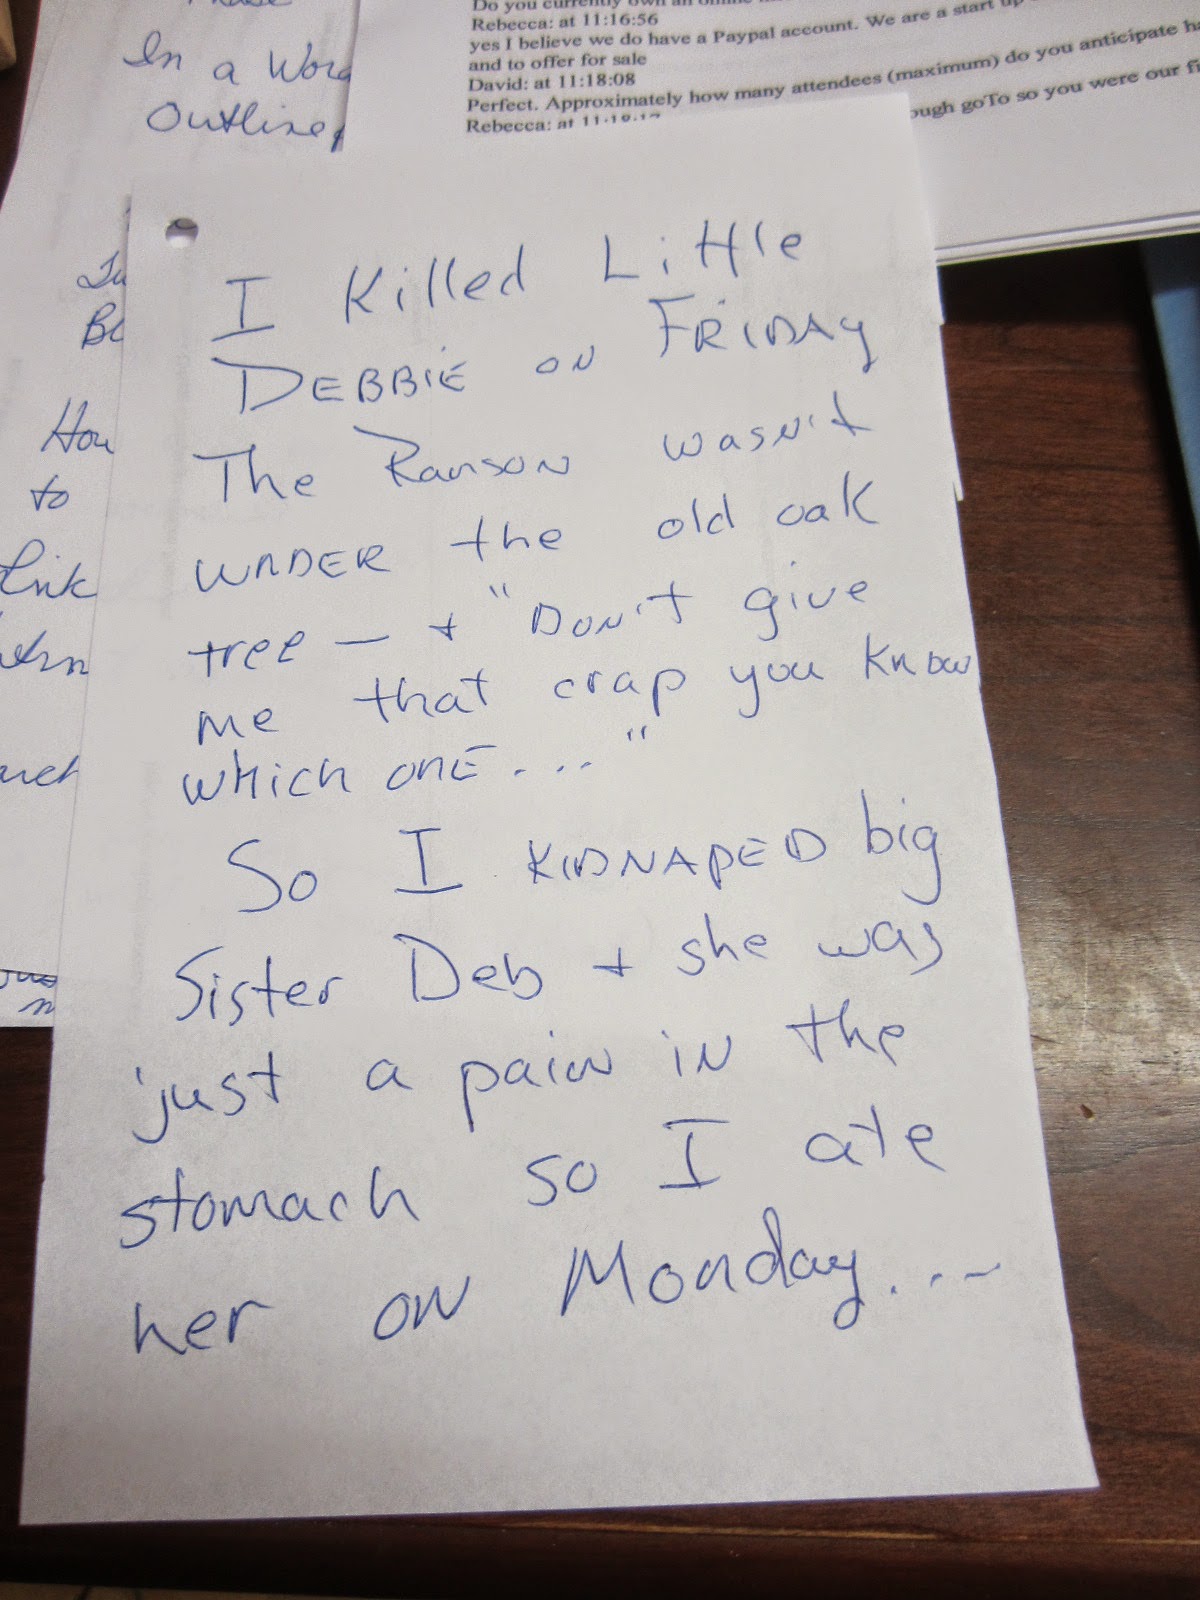 In a Word
Outline
Do you currently own an online
Rebecca: at 11:16:56
yes I believe we do have a Paypal account. We are a start up
and to offer for sale
David: at 11:18:08
Perfect. Approximately how many attendees (maximum) do you anticipate
Rebecca: at
goTo so you were our
I Killed Little
DEBBIE ON FRIDAY
The Ranson wasn't
UNDER the old oak
tree — + "DON'T give
me that crap you know
WHICH ONE...."
So I KIDNAPED big
Sister Deb + she was
just a pain in the
stomach so I ate
her on Monday...
to
Link